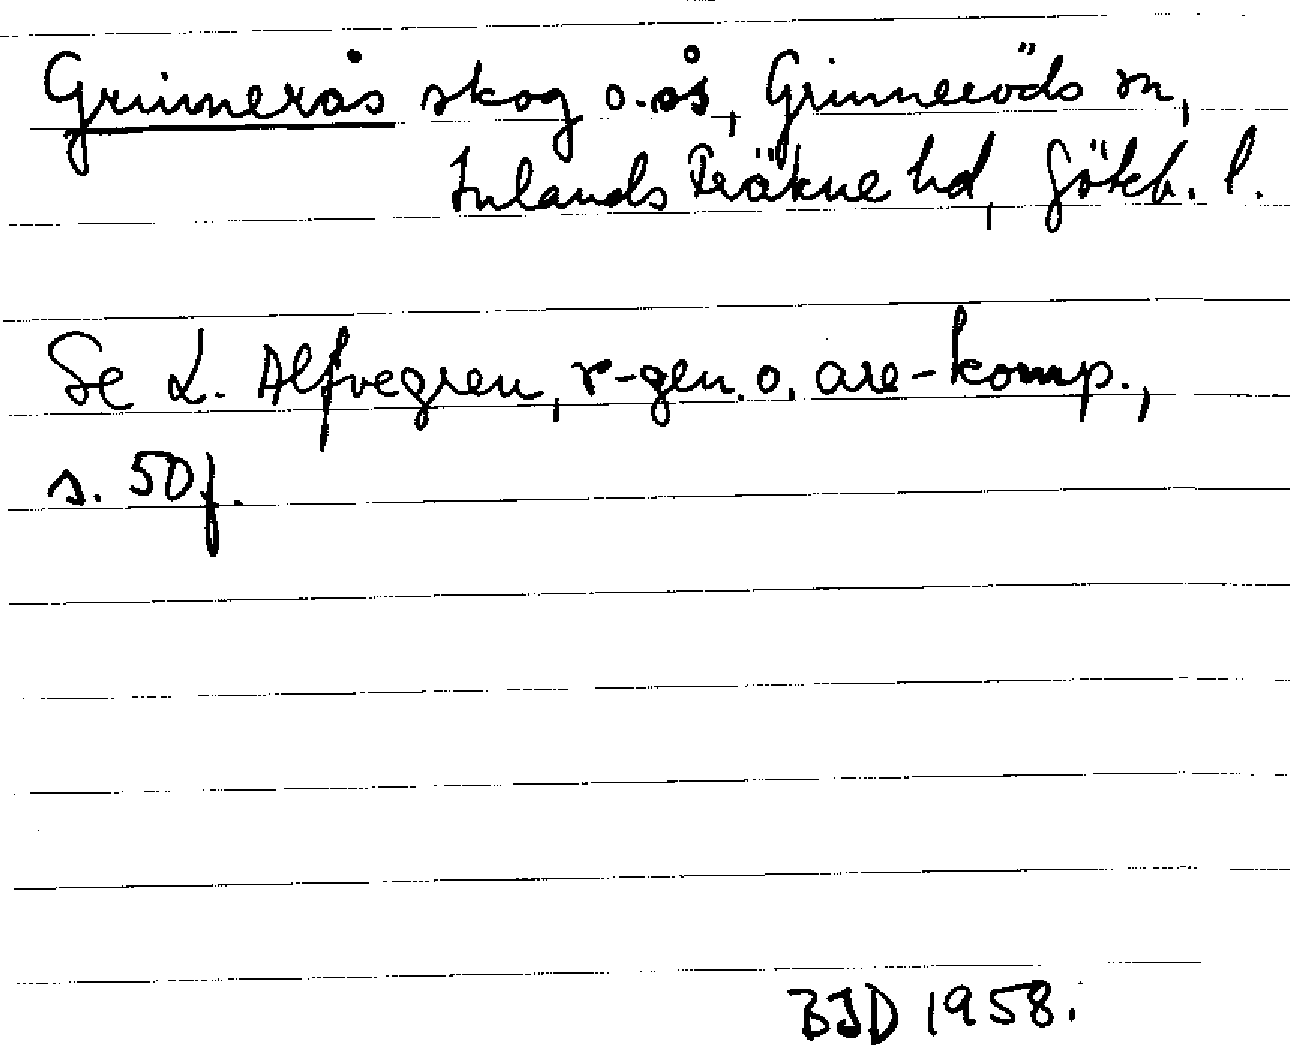 Grinnerås skog o. ås, Grinneröds sn,
Inlands Fräkne hd, Göteb. l.
Se L. Alfvegren, r-gen. o. are-komp.,
s. 50 f.
BJD 1958.